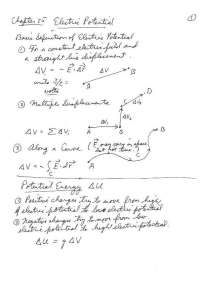 Chapter 25 Electric Potential ①
Basic definition of Electric Potential
① For a constant electric field and
a straight line displacement.
ΔV = - E⃗·Δr⃗
units J/C =
volts
A Δr⃗ B
② Multiple Displacements
ΔV = Σ ΔVᵢ
A ΔV₁ B ΔV₂ C ΔV₃ D
③ Along a Curve (E⃗ may vary in space
but not time.)
ΔV = -∫ E⃗·dr⃗
C
A C B
Potential Energy ΔU
① Positive charges try to move from high
electric potential to low electric potential
② Negative charges try to move from low
electric potential to high electric potential.
ΔU = q ΔV